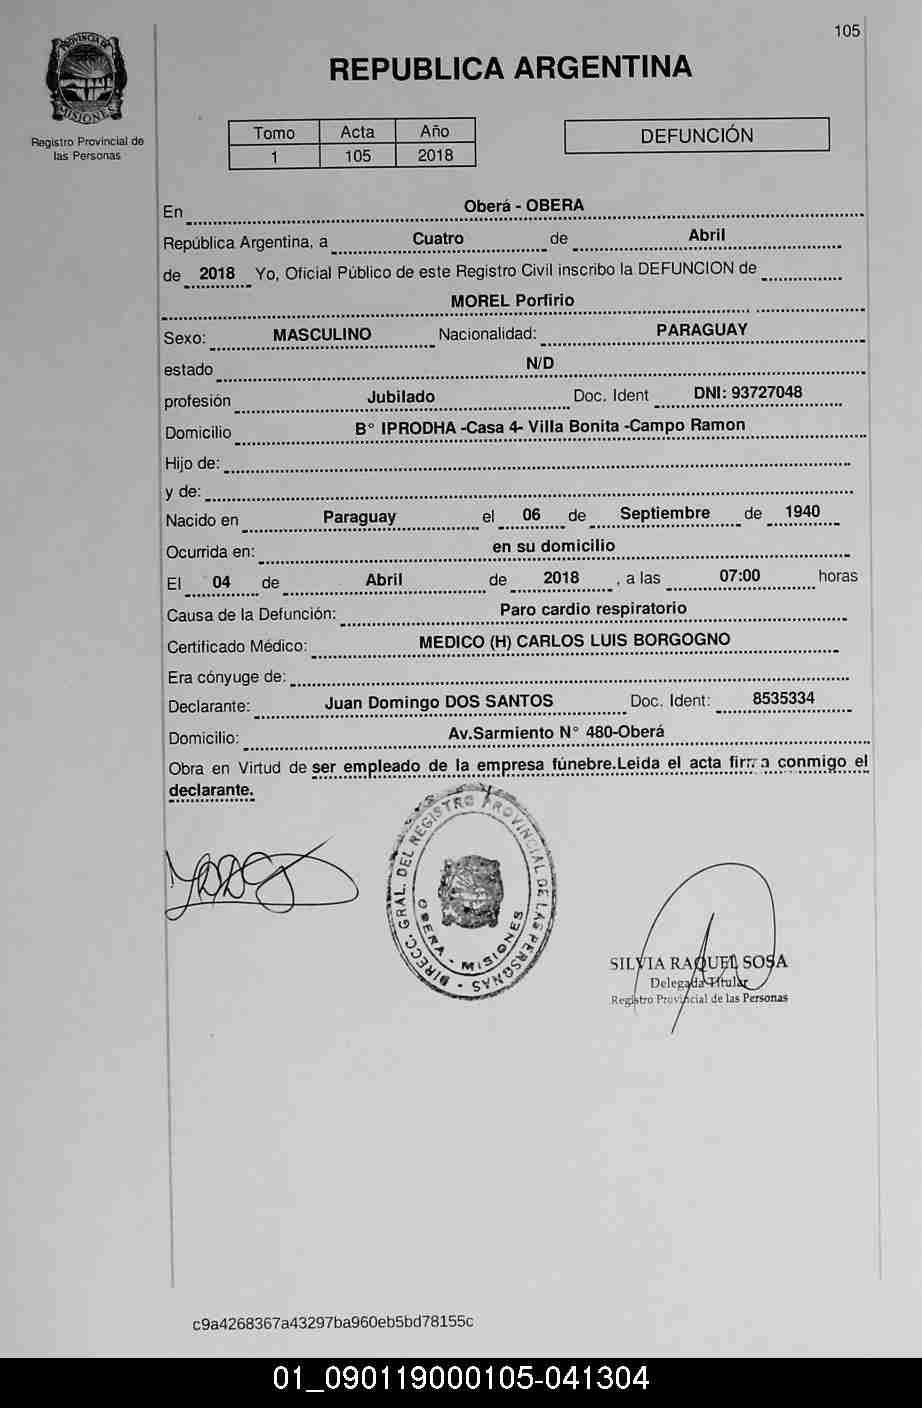 105
PROVINCIA DE
MISIONES
Registro Provincial de
las Personas
REPUBLICA ARGENTINA
Tomo Acta Año
1 105 2018
DEFUNCIÓN
En Oberá - OBERA
República Argentina, a Cuatro de Abril
de 2018 Yo, Oficial Público de este Registro Civil inscribo la DEFUNCION de
MOREL Porfirio
Sexo: MASCULINO Nacionalidad: PARAGUAY
estado N/D
profesión Jubilado Doc. Ident DNI: 93727048
Domicilio B° IPRODHA -Casa 4- Villa Bonita -Campo Ramon
Hijo de:
y de:
Nacido en Paraguay el 06 de Septiembre de 1940
Ocurrida en: en su domicilio
El 04 de Abril de 2018 , a las 07:00 horas
Causa de la Defunción: Paro cardio respiratorio
Certificado Médico: MEDICO (H) CARLOS LUIS BORGOGNO
Era cónyuge de:
Declarante: Juan Domingo DOS SANTOS Doc. Ident: 8535334
Domicilio: Av.Sarmiento N° 480-Oberá
Obra en Virtud de ser empleado de la empresa fúnebre.Leida el acta firma conmigo el
declarante.
DIRECC. GRAL. DEL REGISTRO PROVINCIAL DE LAS PERSONAS
OBERA - MISIONES
SILVIA RAQUEL SOSA
Delegada Titular
Registro Provincial de las Personas
c9a4268367a43297ba960eb5bd78155c
01_090119000105-041304